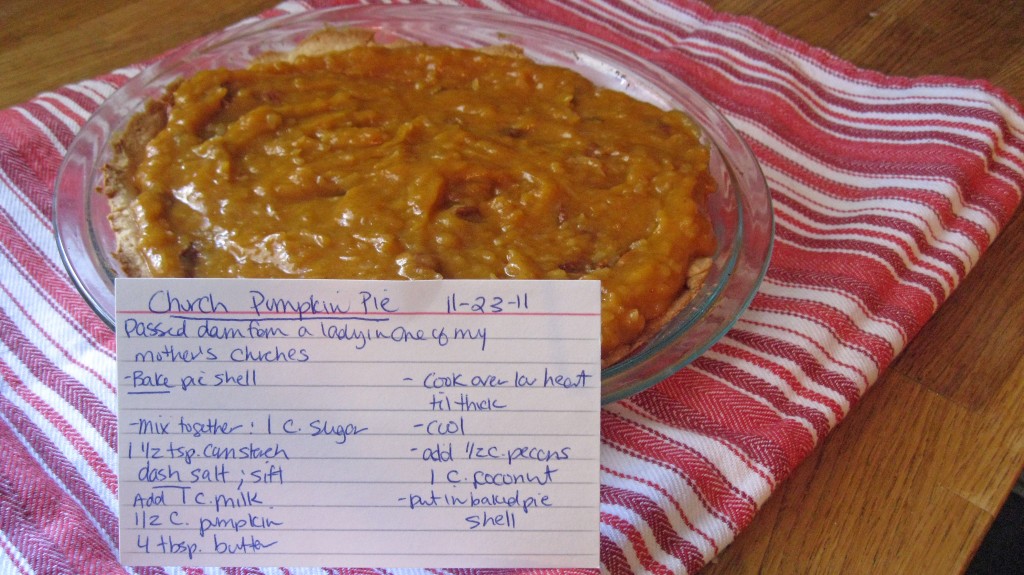 Church Pumpkin Pie 11-23-11
Passed down from a lady in One of my
mother's churches
- Bake pie shell
- Mix together: 1 C. sugar
1 1/2 tsp. cornstarch
dash salt; sift
Add 1 C. milk
1/2 C. pumpkin
4 tbsp. butter
- cook over low heat
til thick
- cool
- add 1/2 C. pecans
1 C. coconut
- put in baked pie
shell